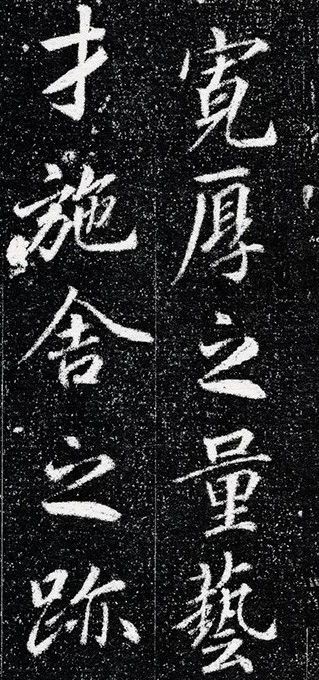 寬厚之量藝
才施舍之跡